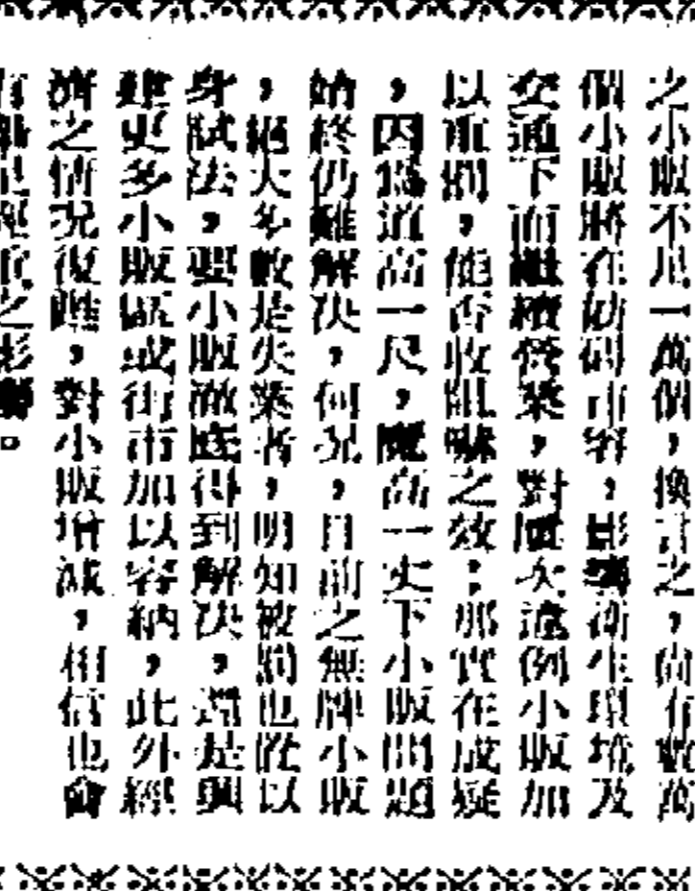 之小販不是一萬個，換言之，尚有數萬
個小販將在妨碍市容，影響衞生環境及
交通下而繼續營業，對屢次違例小販加
以重罰，能否收阻嚇之效；那實在成疑
，因爲道高一尺，魔高一丈下小販問題
始終仍難解决，何况，目前之無牌小販
，絕大多數是失業者，明知被罰也從以
身試法，要小販澈底得到解决，還是興
建更多小販區或街市加以容納，此外經
濟之情况復甦，對小販增減，相信也會
有制之影響。